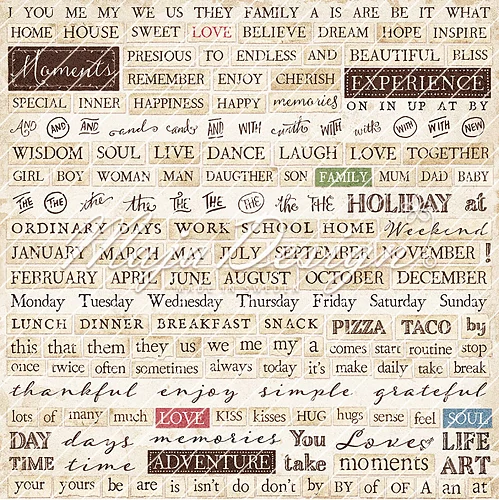 I YOU ME MY WE US THEY FAMILY A IS ARE BE IT WHAT
HOME HOUSE SWEET LOVE BELIEVE DREAM HOPE INSPIRE
Moments PRESIOUS TO ENDLESS AND BEAUTIFUL BLISS
REMEMBER ENJOY CHERISH EXPERIENCE
SPECIAL INNER HAPPINESS HAPPY memories ON IN UP AT BY
AND AND AND and and AND WITH with WITH with WITH WITH NEW
WISDOM SOUL LIVE DANCE LAUGH LOVE TOGETHER
GIRL BOY WOMAN MAN DAUGTHER SON FAMILY MUM DAD BABY
THE THE the the the THE THE the the THE HOLIDAY at
ORDINARY DAYS WORK SCHOOL HOME Weekend
JANUARY MARCH MAY JULY SEPTEMBER NOVEMBER !
FEBRUARY APRIL JUNE AUGUST OCTOBER DECEMBER
Monday Tuesday Wednesday Thursday Friday Saturday Sunday
LUNCH DINNER BREAKFAST SNACK PIZZA TACO by
this that them they us we me my a comes start routine stop
once twice often sometimes always today it's make daily take break
thankful enjoy simple grateful
lots of many much LOVE KISS kisses HUG hugs sense feel SOUL
DAY days memories You Loves LIFE
TIME time ADVENTURE take moments ART
your yours be are is isn't do don't by BY of OF A an at
Maja Design